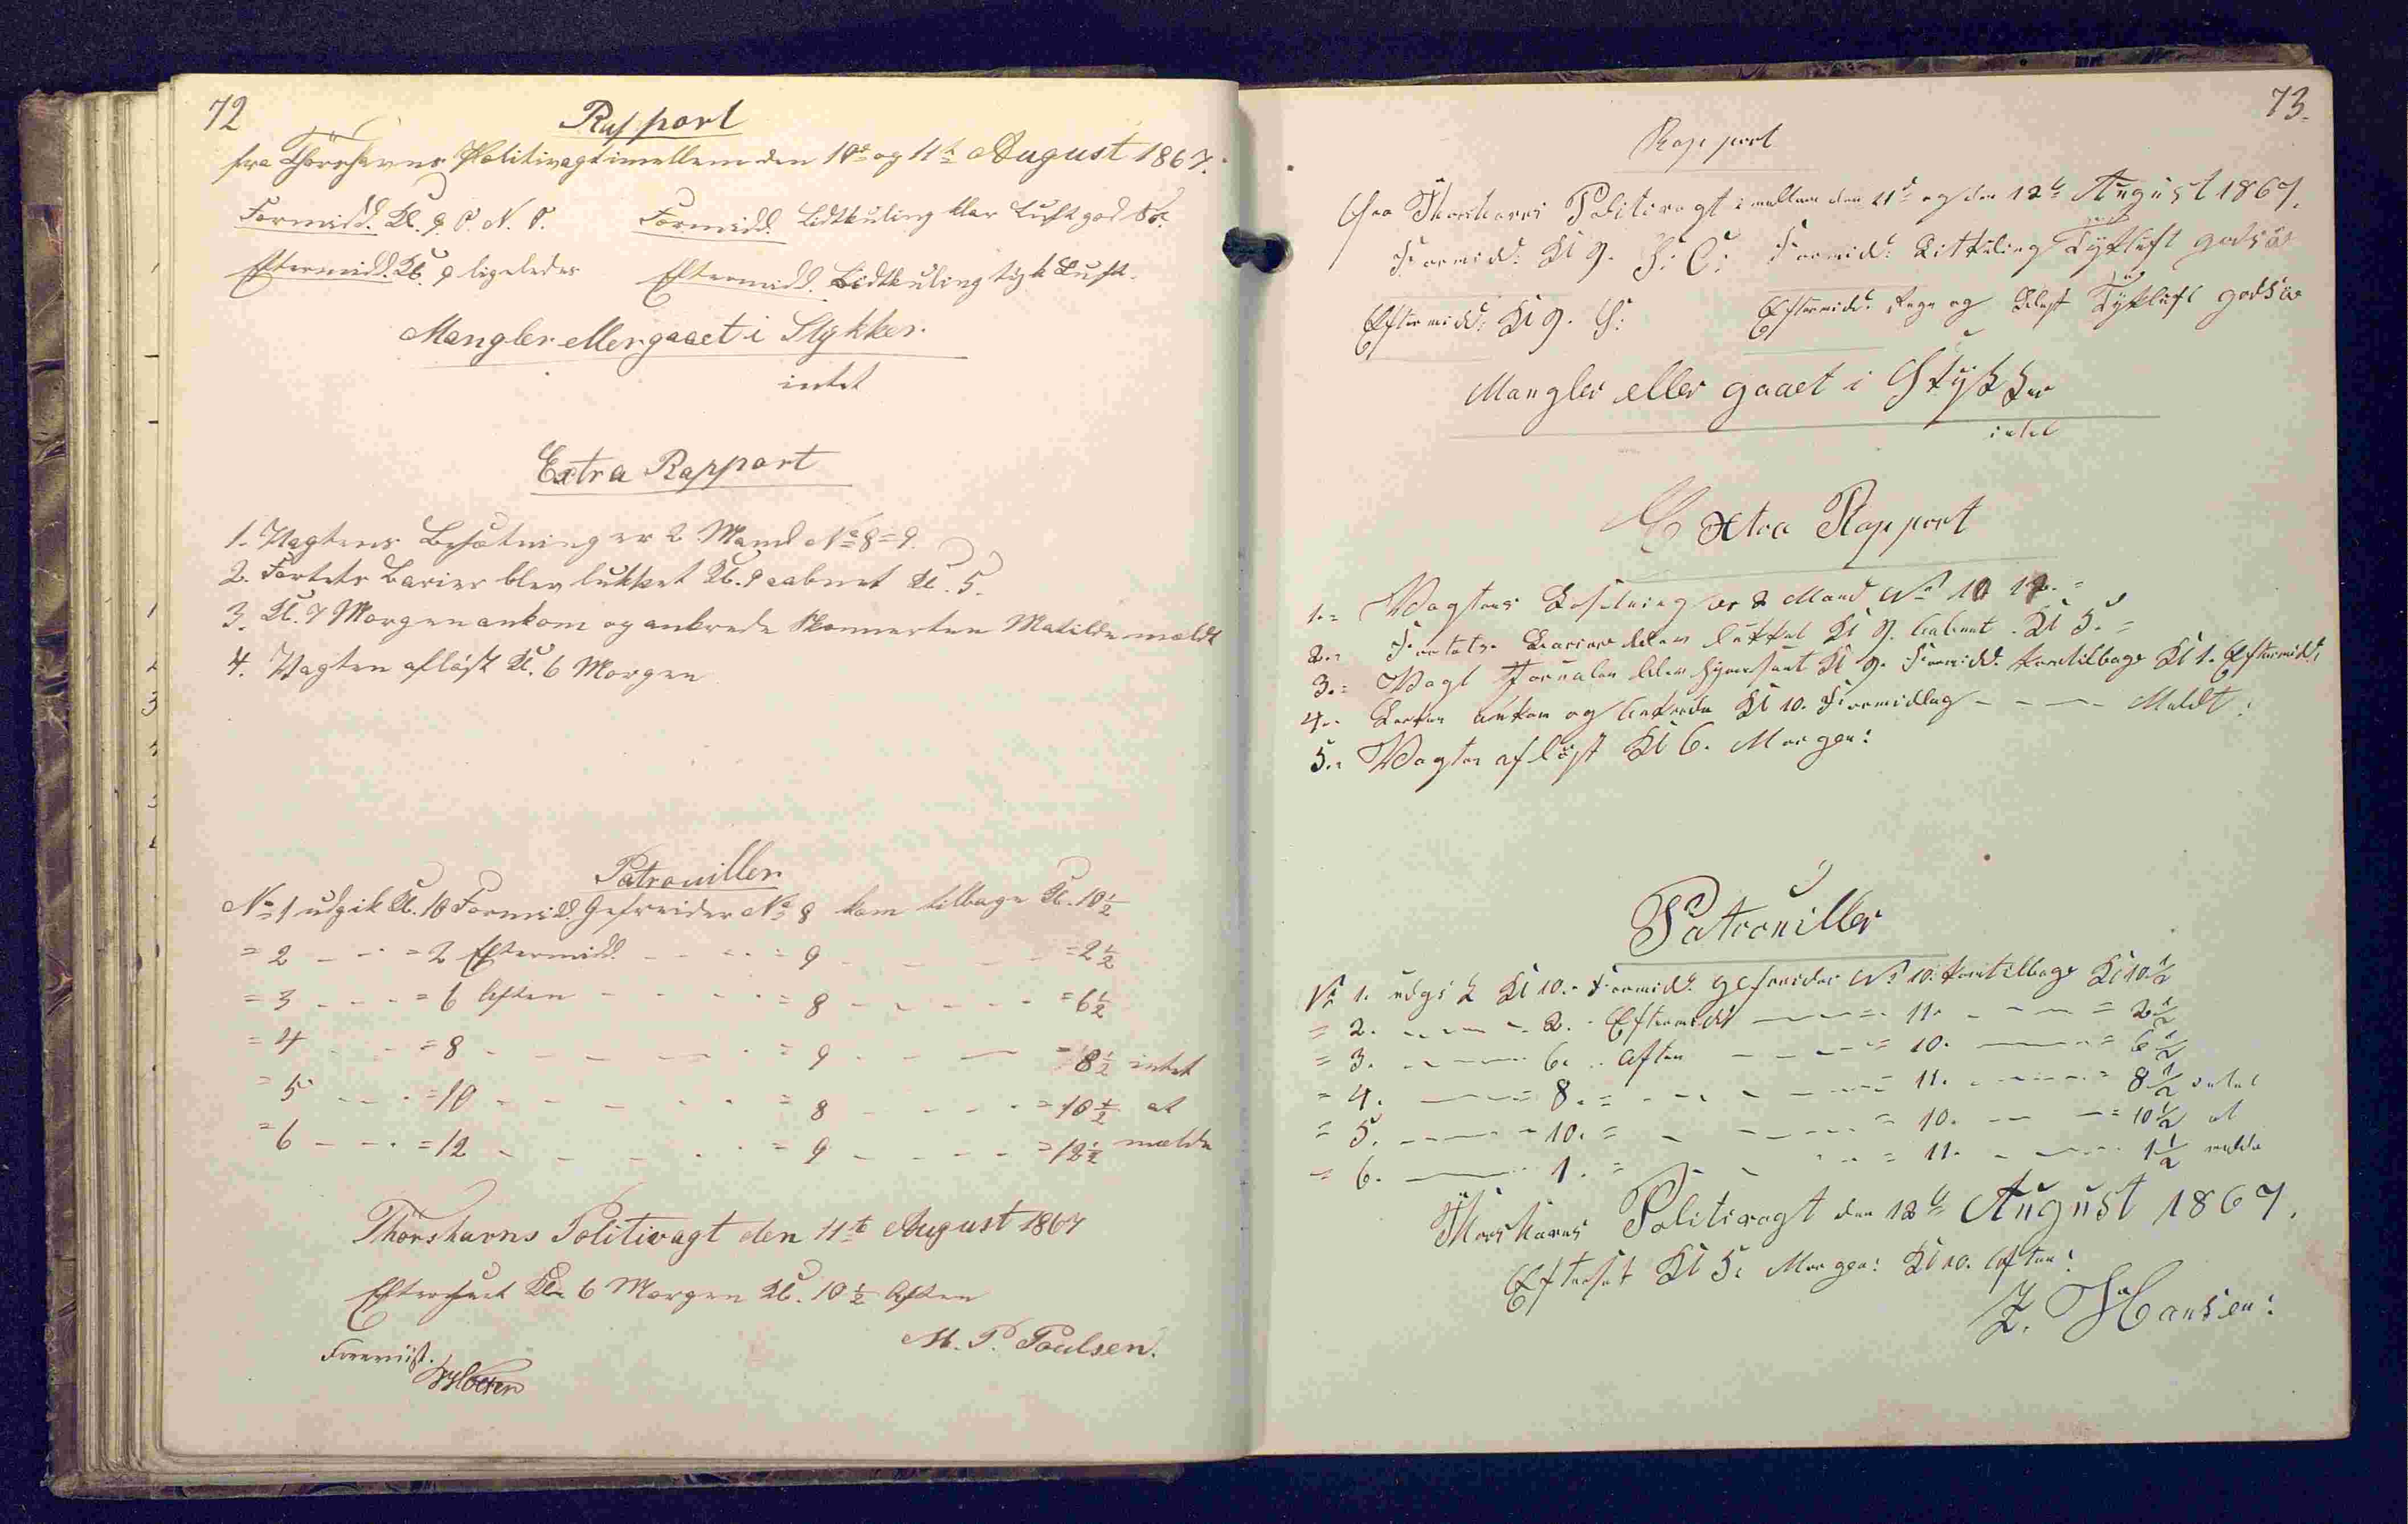 72
Rapport
fra Thorshavns Politivagt imellem den 10de og 11te August 1867.
Formidd. Kl. 9 O. N. O. Formidd. Lidtkuling klar Luft god Sö.
Eftermidd. Kl. 9 ligeledes Eftermidd. Lidtkuling tyk Luft.
Mangler eller gaaet i Stykker.
intet
Extra Rapport
1. Vagtens Besætning er 2 Mand No 8 = 9.
2. Fortets Barier blev lukket Kl. 9 aabnet Kl. 5.
3. Kl. 7 Morgen ankom og ankrede Skonnerten Matilde meldt
4. Vagten aflöst Kl. 6 Morgen
Patrouiller
No 1 udgik Kl. 10 Formidd. Gefreider No 8 kom tilbage Kl. 10 1/2
= 2 - - = 2 Eftermidd. - - - = 9 - - - = 2 1/2
= 3 - - - = 6 Aften - - - - = 8 - - - - = 6 1/2
= 4 - - = 8 - - - - - = 9 - - - = 8 1/2 intet
= 5 - - - = 10 - - - - - = 8 - - - - = 10 1/2 at
= 6 - - - = 12 - - - - - = 9 - - - - = 12 1/2 melde
Thorshavns Politivagt den 11te August 1867
Efterseet Kl. 6 Morgen Kl. 10 1/2 Aften
M. P. Poulsen.
Foreviist.
73.
Rapport
fra Thorshavns Politivagt imellem den 11te og den 12te August 1867.
Formidd: Kl 9. S: O: Formidd: Litkuling Tykluft godsöe
Eftermidd: Kl 9. S: Eftermidd: Regn og Blæst Tykluft godsöe
Mangler eller gaaet i Stykker
intet
Extra Rapport
1. = Vagtens Besetning er 2 Mand No 10 11. =
2. = Fortets Barier blev lukket Kl 9. aabnet Kl 5. =
3. = Vagt Jornalen blev hjemsent Kl 9. Formidd. kom tilbage Kl 1. Eftermidd:
4. = ankom og ankrede Kl 10. Formiddag - - - Meldt:
5. = Vagten aflöst Kl 6. Morgen:
Patrouiller
No 1. udgik Kl 10. = Formidd. gefreider No 10. kom tilbage Kl 10. 1/2
= 2. - - - - 2. - Eftermidd - - - = 11. - - - = 2 1/2
= 3. - - - - 6. - Aften - - - = 10. - - - = 6 1/2
= 4. - - = 8. = - - - - - = 11. - - - - = 8 1/2 intet
= 5. - - - = 10. = - - - - = 10. - - - = 10 1/2 at
= 6. - - - 1. = - - - - = 11. - - - 1 1/2 melde
Thorshavns Politivagt den 12te August 1867.
Efterset Kl 5. Morgen: Kl 10. Aften:
Z. Hansen: